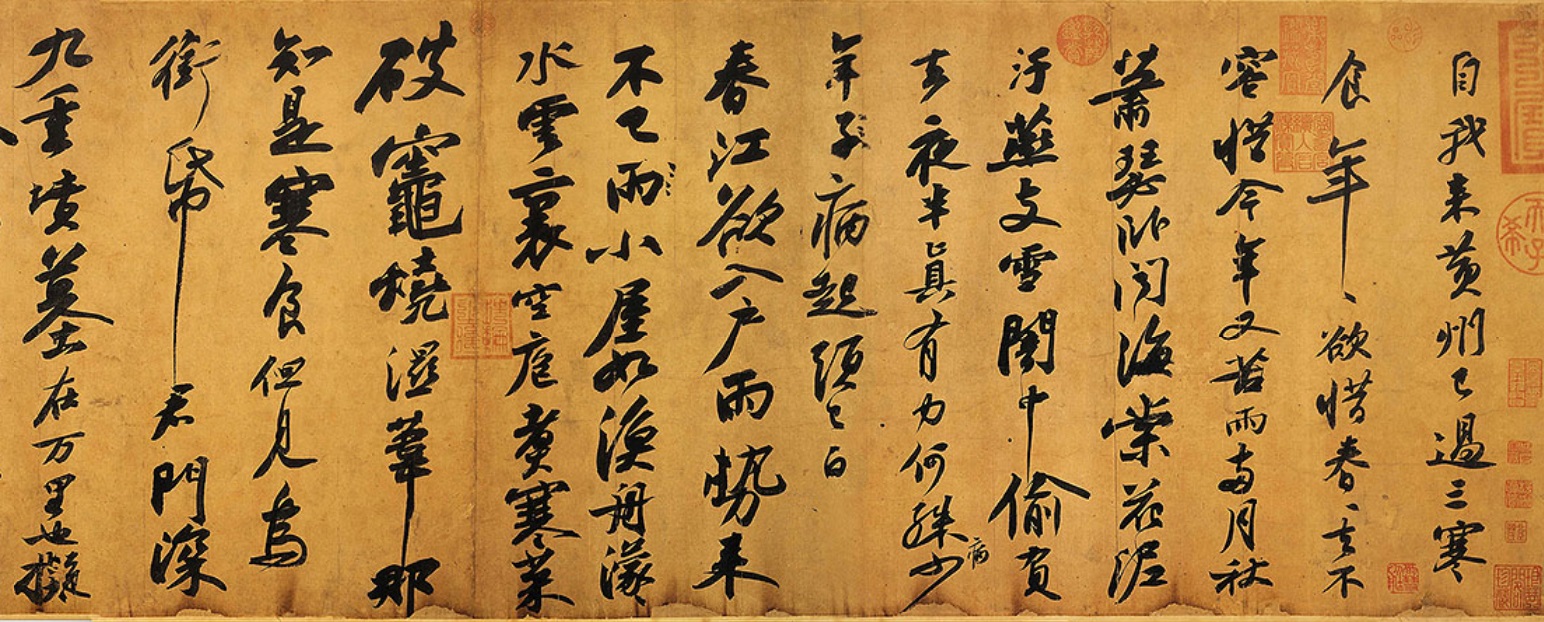 自我来黄州已過三寒
食年〻欲惜春〻去不
容惜今年又苦雨兩月秋
蕭瑟卧聞海棠花泥
汙燕支雪闇中偷負
去夜半真有力何殊病少
年子病起頭已白
春江欲入戶雨勢来
不已雨小屋如漁舟濛〻
水雲裏空庖煑寒菜
破竈燒濕葦那
知是寒食但見烏
銜帋君門深
九重墳墓在万里也擬